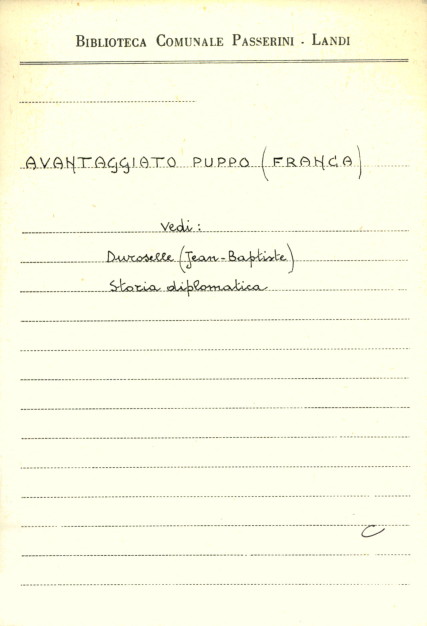 BIBLIOTECA COMUNALE PASSERINI - LANDI
AVANTAGGIATO PUPPO (FRANCA)
Vedi:
Duroselle (Jean-Baptiste)
Storia diplomatica
C